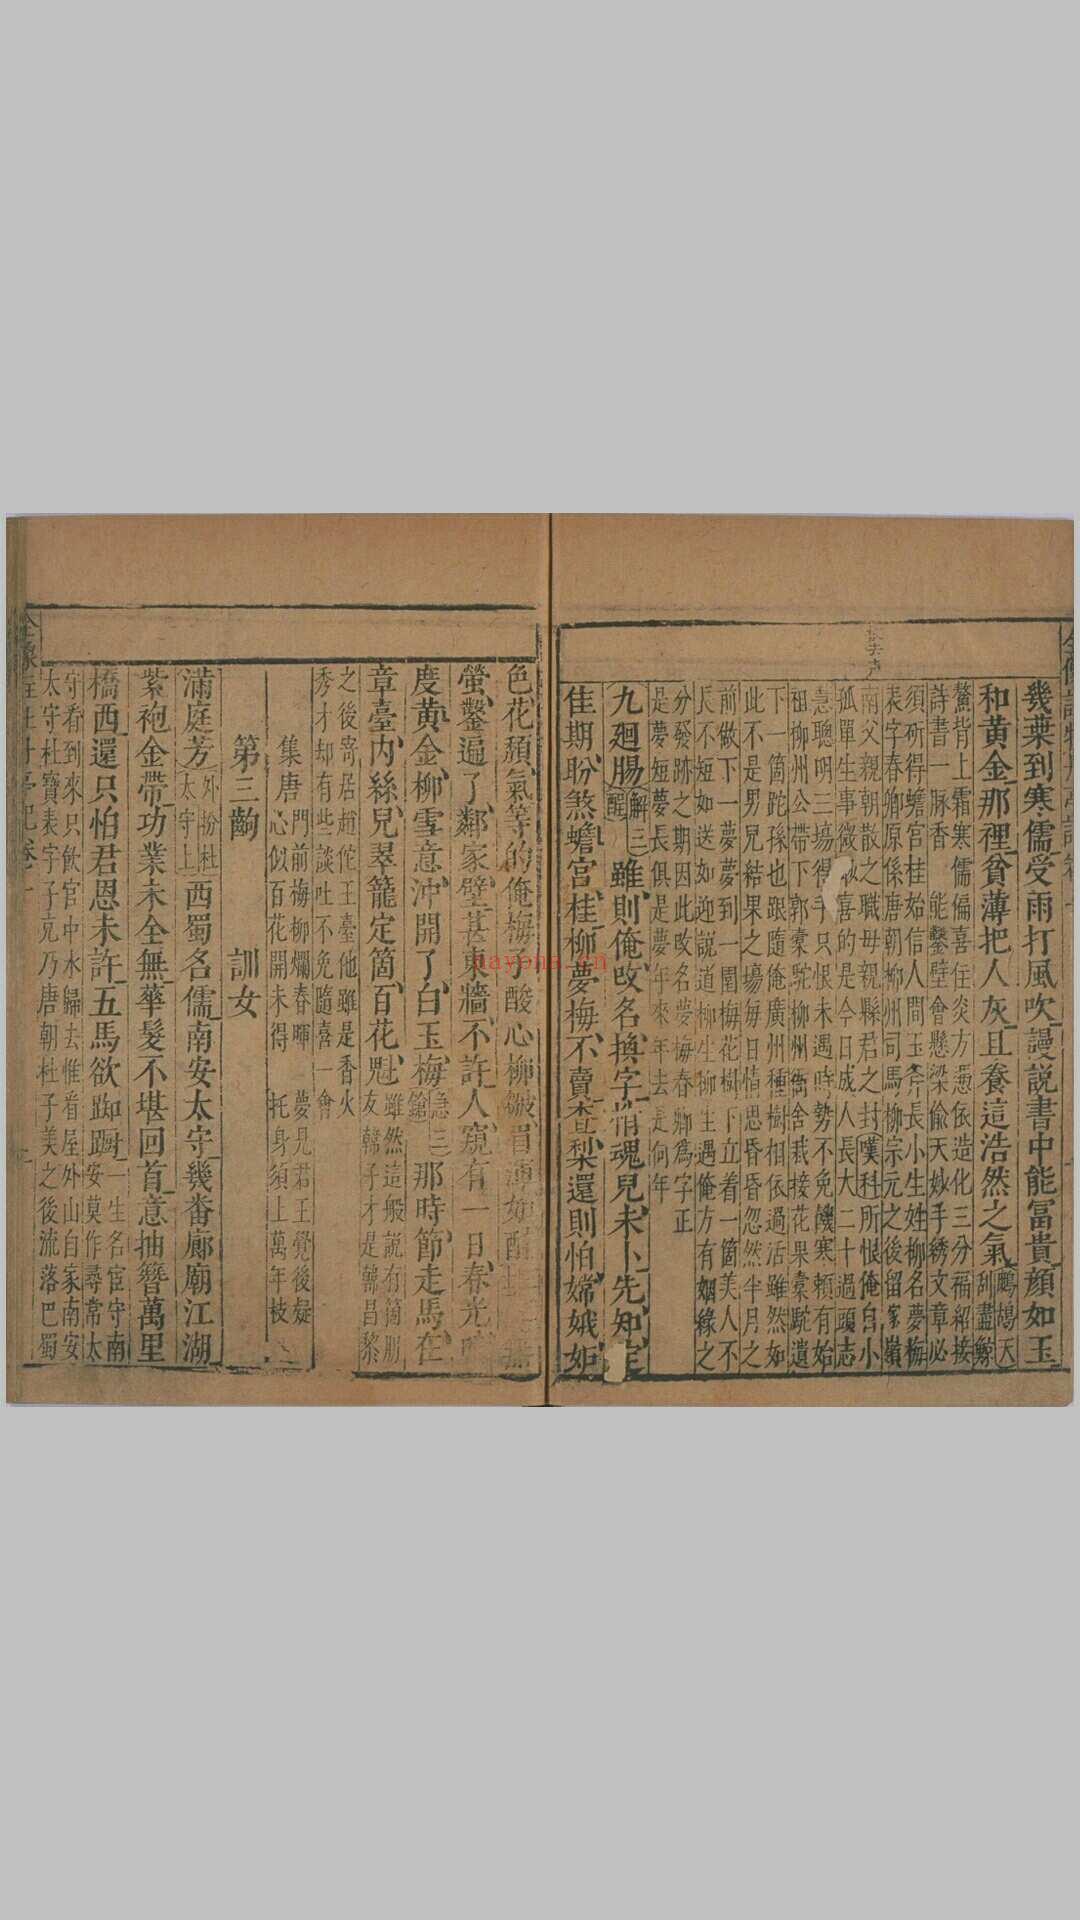 幾葉到寒儒受雨打風吹謾說書中能富貴顔如玉
和黃金那裡貧薄把人灰且養這浩然之氣
鷓鴣天
刮盡鯨
鰲背上霜寒儒偏喜住炎方憑依造化三分福紹接
詩書一脉香 能鑿壁會懸梁偷天妙手綉文章必
須斫得蟾宮桂始信人間玉斧長小生姓柳名夢梅
表字春卿原係唐朝柳州司馬柳宗元之後留家嶺
南父親朝散之職母親縣君之封嘆科所恨俺自小
孤單生事微
喜的是今日成人長大二十過頭志
慧聰明三塲得手只恨未遇時勢不免饑寒賴有始
祖柳州公帶下郭橐駝柳州衙舍栽接花果橐駝遺
下一箇跎孫也跟隨俺廣州種樹相依過活雖然如
此不是男兒結果之塲每日情思昏昏忽然半月之
前做下一夢夢到一園梅花樹下立着一箇美人不
長不短如送如迎說道柳生柳生遇俺方有姻緣之
分發跡之期因此改名夢梅春卿爲字正
是夢短夢長俱是夢年來年去是何年
九廻腸
解三
酲
雖則俺改名換字悄魂兒未卜先知定
佳期盼煞蟾宮桂柳夢梅不賣查梨還則怕嫦娥妬
色花頹氣等的俺梅子酸心柳皺眉渾如醉
螢鑿遍了鄰家壁甚東牆不許人窺有一日春光
度黃金柳雪意冲開了白玉梅
急三
鎗
那時節走馬在
章臺內絲兒翠籠定箇百花魁
雖然這般說有箇朋
友韓子才是韓昌黎
之後寄居趙佗王臺他雖是香火
秀才却有些談吐不免隨喜一會
集唐
門前梅柳爛春暉 夢見君王覺後疑
心似百花開未得 托身須上萬年枝
第三齣 訓女
滿庭芳
外扮杜
太守上
西蜀名儒南安太守幾番廊廟江湖
紫袍金帶功業未全無華髮不堪回首意抽簪萬里
橋西還只怕君恩未許五馬欲踟蹰
一生名宦守南
安莫作尋常太
守看到來只飲官中水歸去惟看屋外山自家南安
太守杜寶表字子充乃唐朝杜子美之後流落巴蜀
nayona.cn